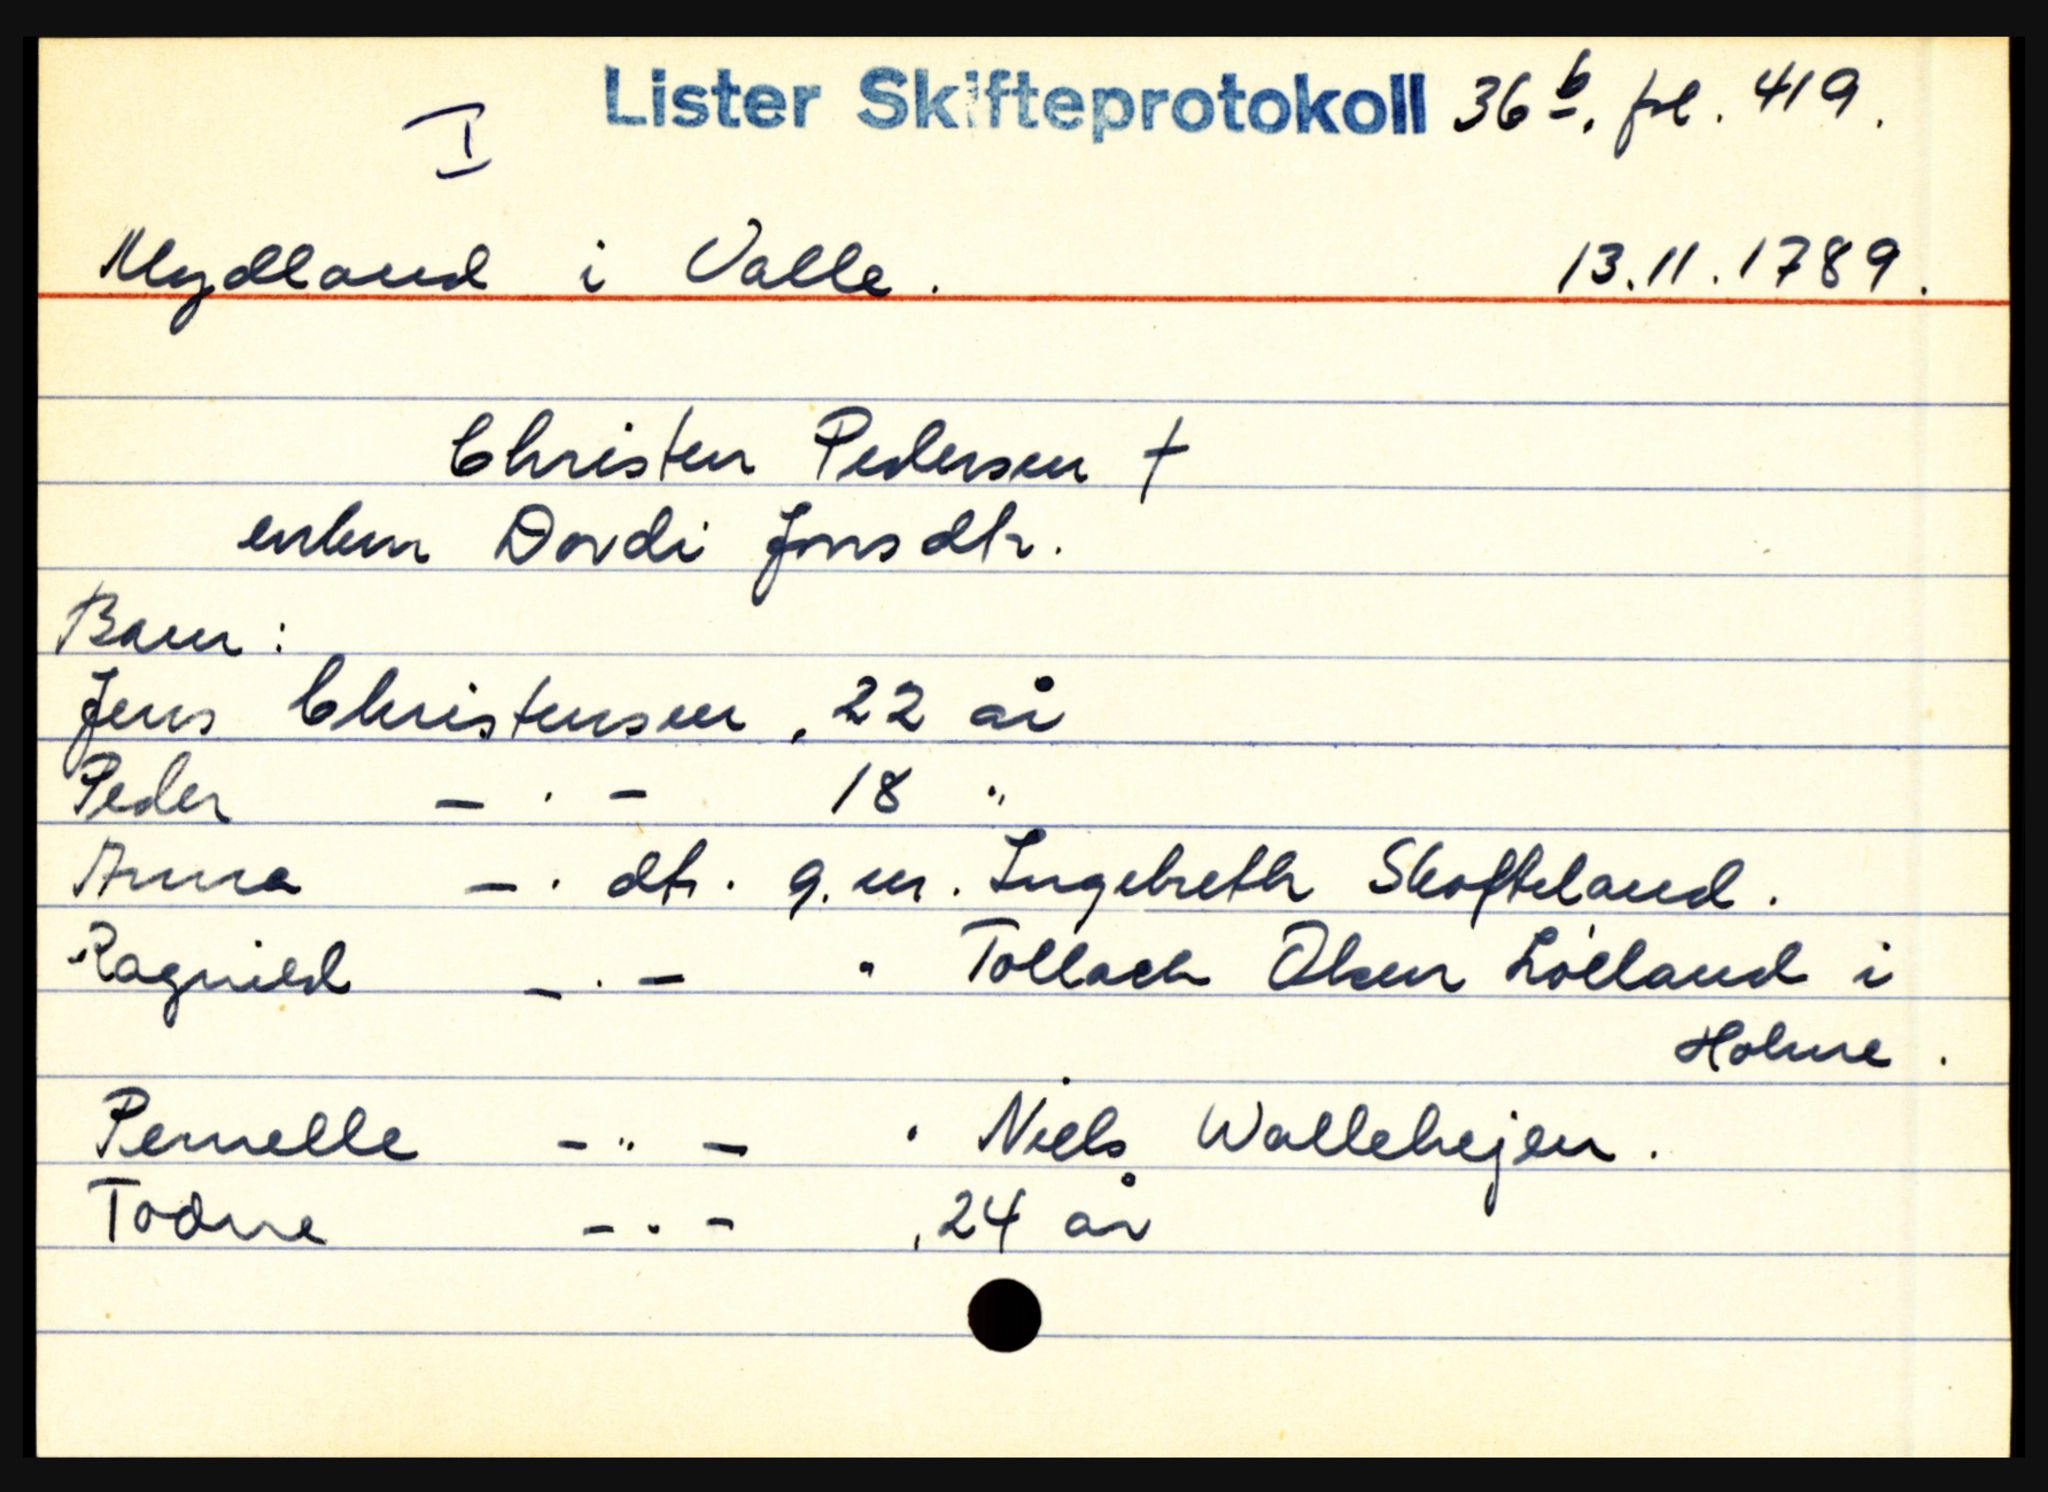 Lister Skifteprotokoll 36 b. fol. 419.
I
Mydland i Valle. 13.11.1789.
Christen Pedersen †
enken Dordi Jonsdtr.
Barn:
Jens Christensen, 22 år
Peder — · — 18 "
Anna — · dtr. g.m. Ingebreth Skofteland.
Ragnild — · — " Tollach Olsen Löland i
Holme.
Pernelle — " — " Niels Wallehejen.
Todne — · — , 24 år